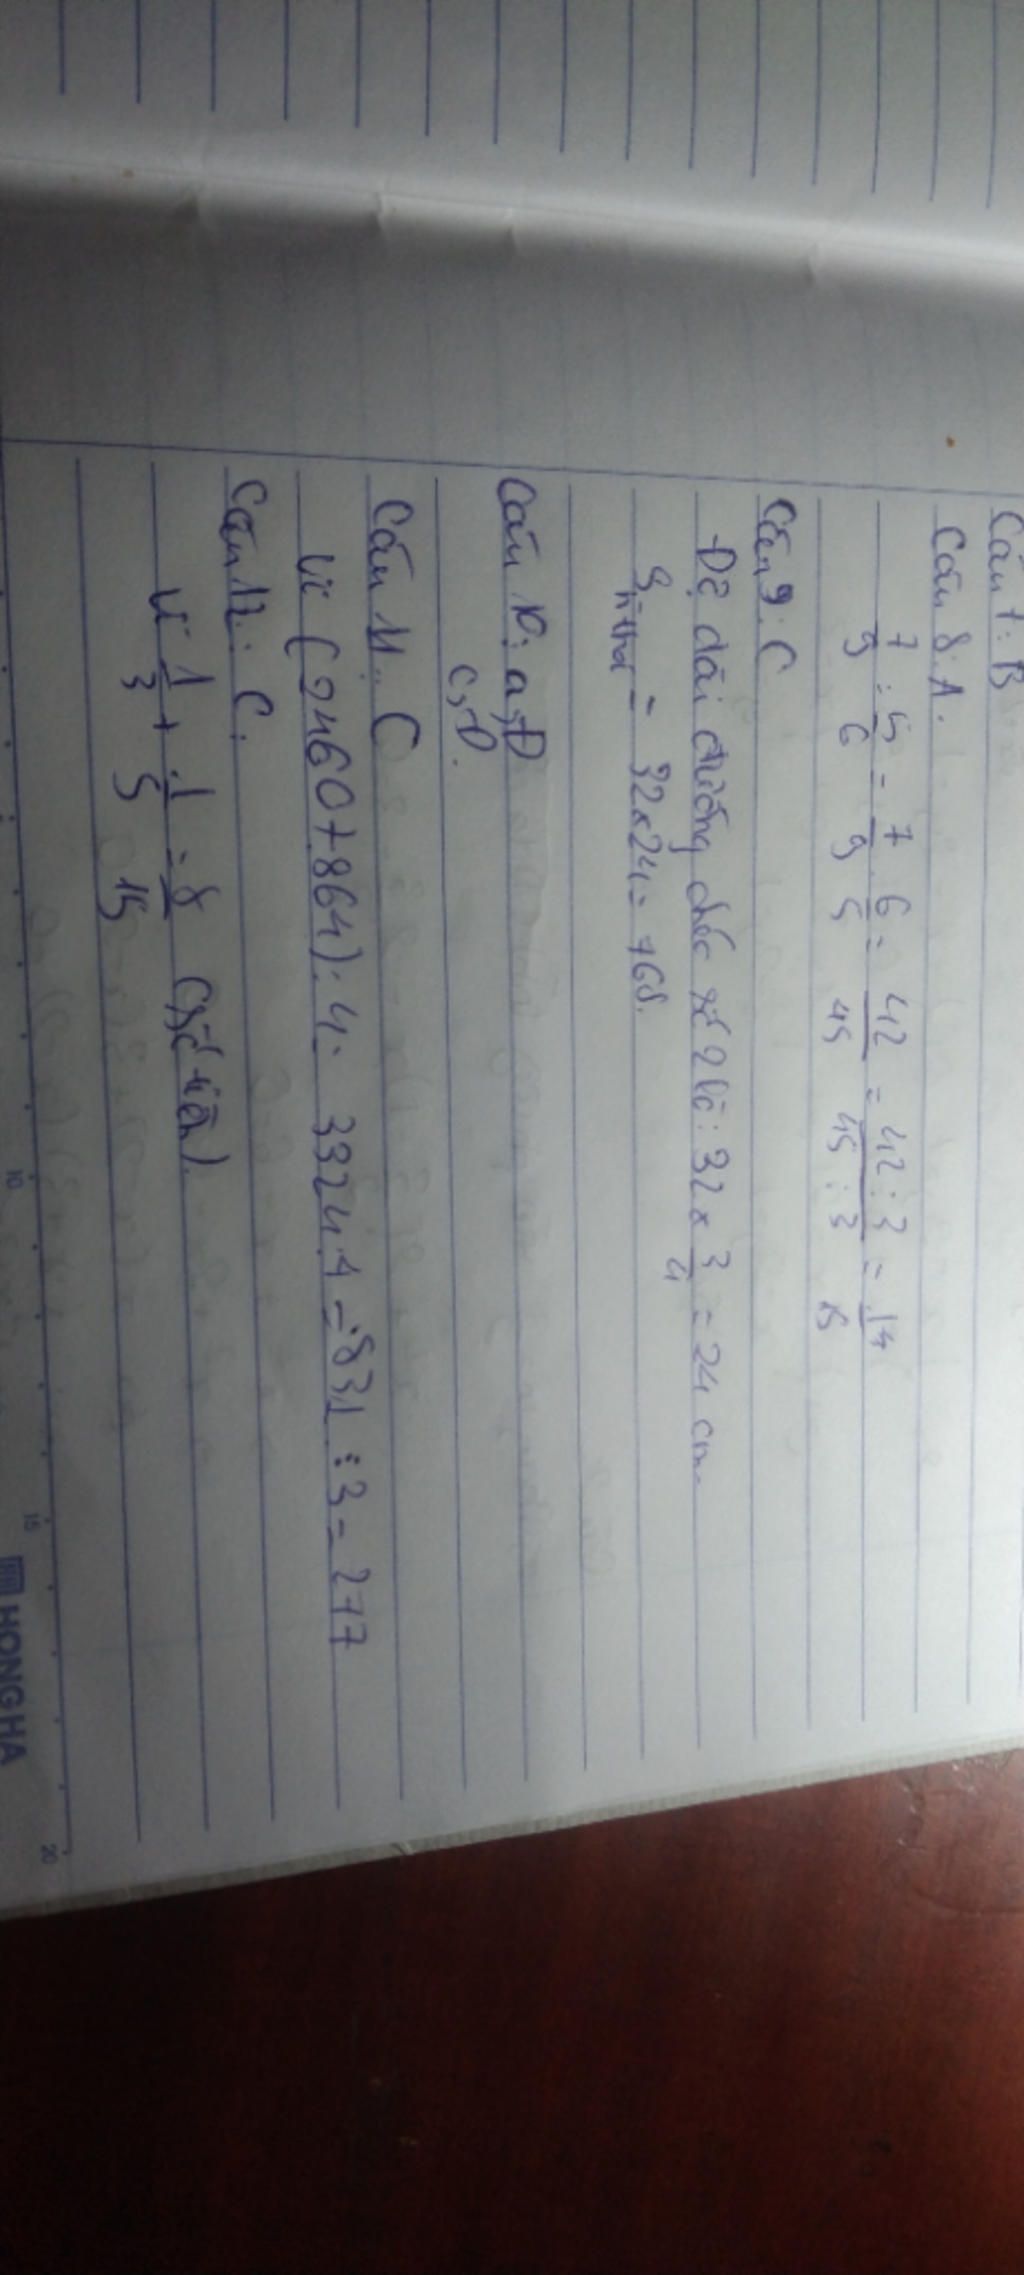 Câu 7: B
Câu 8: A.
7/9 : 5/6 = 7/9 6/5 = 42/45 = 42:3/45:3 = 14/15
Câu 9: C
Độ dài đường chéo số 2 là: 32 x 3/4 = 24 cm.
S hình thoi = 32 x 24 = 768.
Câu 10: a, Đ
c, Đ.
Câu 11: C
Vì (2460 + 864) : 4 = 3324 : 4 = 831 : 3 = 277
Câu 12: C.
Vì 1/3 + 1/5 = 8/15 (số
10
15
20
HONG HA